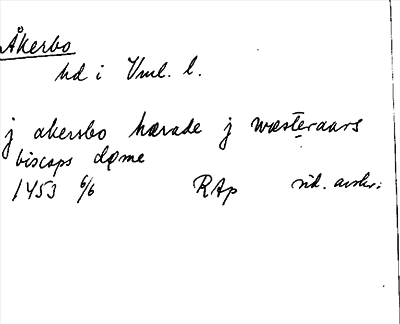 Åkerbo
hd i Vml. l.
j akersbo hærade j wæsteraars
biscops døme
1453 6/6 RAp vid. avskr.